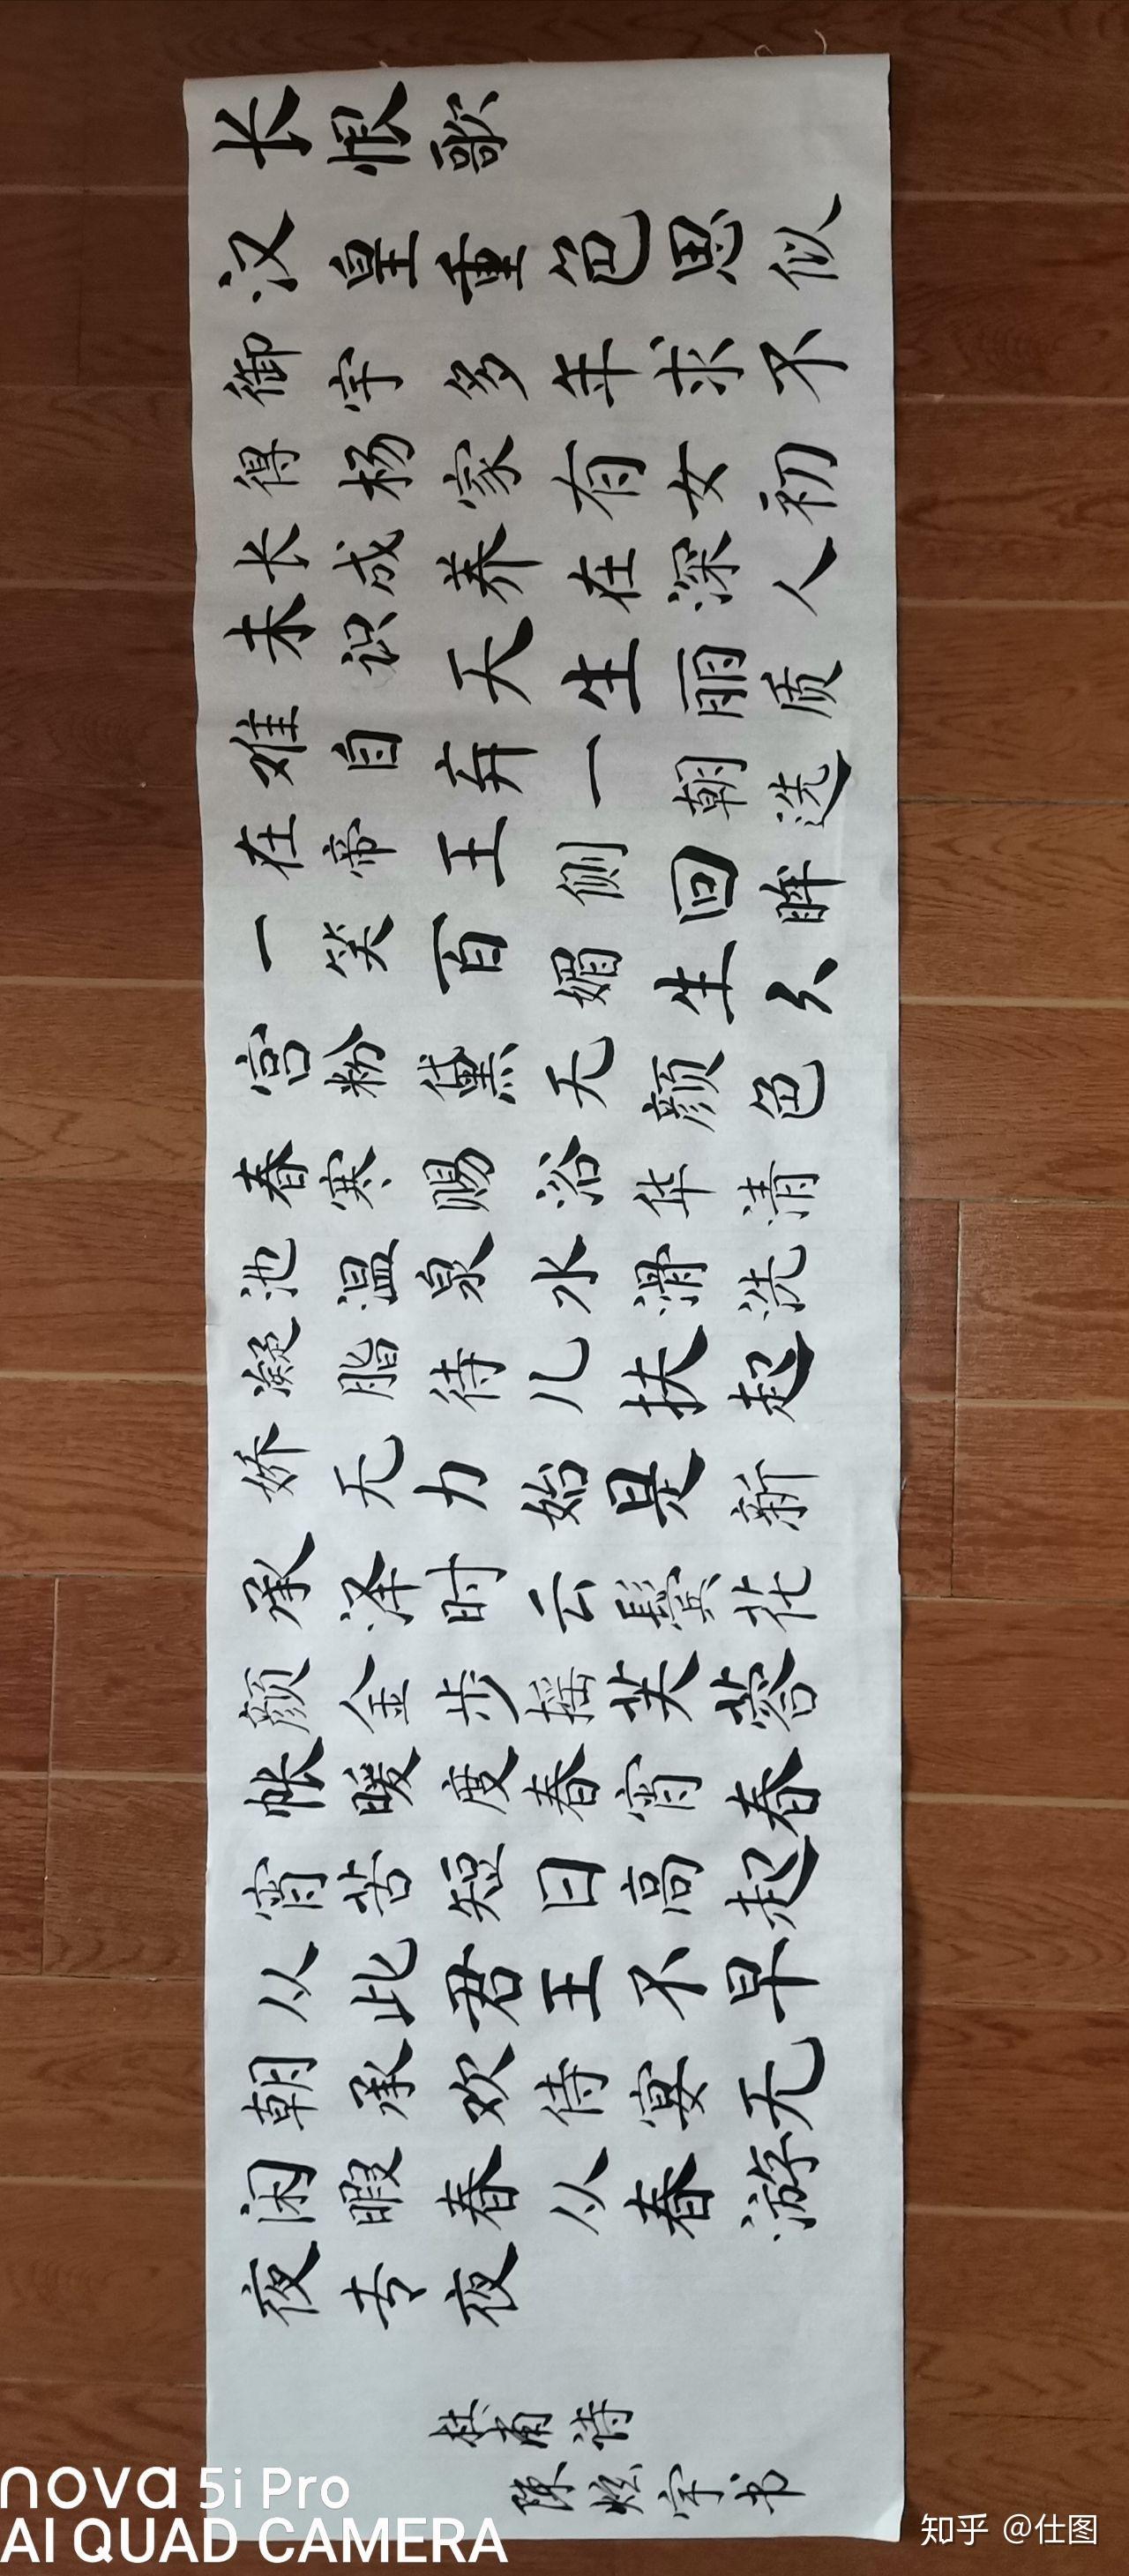 长恨歌
汉皇重色思似
御宇多年求不
得杨家有女初
长成养在深人
未识天生丽质
难自弃一朝选
在帝王侧回眸
一笑百媚生六
宫粉黛无颜色
春寒赐浴华清
池温泉水滑洗
凝脂待儿扶起
娇无力始是新
承泽时云鬓花
颜金步摇芙蓉
帐暖度春宵春
宵苦短日高起
从此君王不早
朝承欢侍宴无
闲暇春从春游
夜专夜
杜甫诗
陳炫宇书
nova 5i Pro
AI QUAD CAMERA
知乎 @仕图